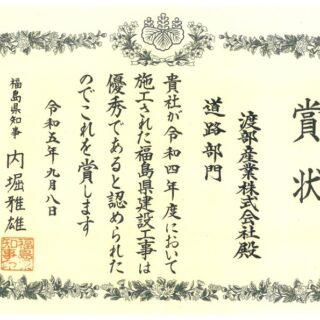 賞状
渡部産業株式会社殿
道路部門
貴社が令和四年度において
施工された福島県建設工事は
優秀であると認められた
のでこれを賞します
令和五年九月八日
福島県知事 内堀雅雄
福島県知事之